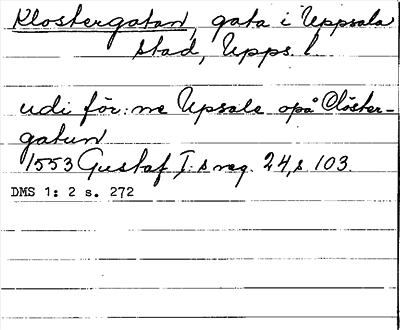 Klostergatan, gata i Uppsala
stad, Upps. l.
udi för:ne Upsala opå Clöster-
gatun
1553 Gustaf I:s reg. 24, s 103.
DMS 1: 2 s. 272